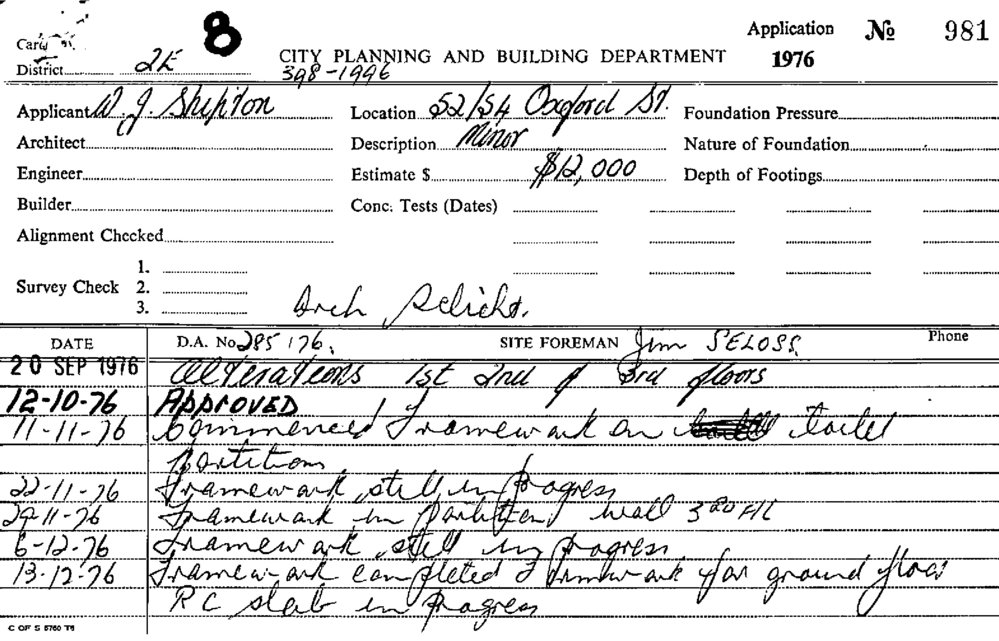 Card 8 Application № 981
District 2E CITY PLANNING AND BUILDING DEPARTMENT 1976
398-1996
Applicant W. J. Shipton Location 52/54 Oxford St. Foundation Pressure
Architect Description Minor Nature of Foundation
Engineer Estimate $ $12,000 Depth of Footings
Builder Conc. Tests (Dates)
Alignment Checked
1.
Survey Check 2.
3. Arch
DATE D.A. No 285/76. SITE FOREMAN Jim SELOSS Phone
20 SEP 1976 Alterations 1st 2nd & 3rd floors
12-10-76 APPROVED
11-11-76 Commenced Framework on toilet
partitions
22-11-76 Framework still in progress
29-11-76 Framework in partition wall 3RD FL
6-12-76 Framework still in progress
13-12-76 Framework completed & formwork for ground floor
RC slab in progress
C OF S 5760 T5